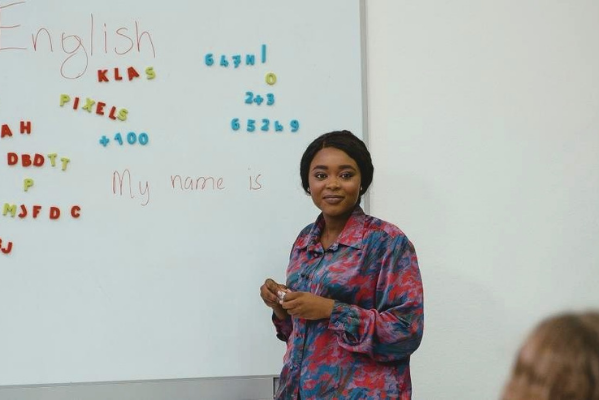 English
KLAS
PIXELS
+400
AH
DBDTT
P
MJFDC
My name is
647N
O
2+3
65269